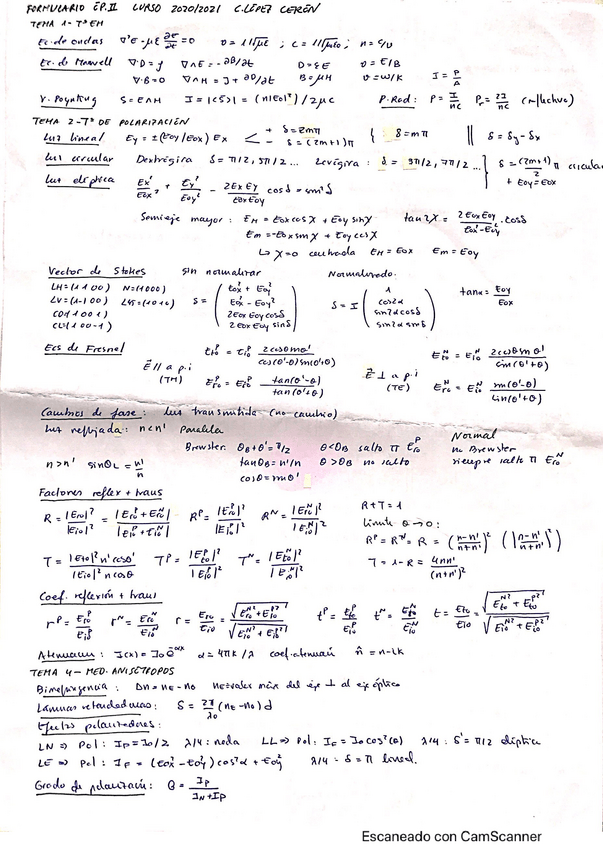 FORMULARIO EP.II CURSO 2020/2021 C.LÓPEZ CERÓN
TEMA 1 - Tª EM
Ec. de ondas ∇²E - με ∂E/∂t = 0 v = 1/√με ; c = 1/√με₀ ; n = c/v
Ec. de Maxwell ∇·D = ρ ∇∧E = -∂B/∂t D = εE v = E/B
∇·B = 0 ∇∧H = J + ∂D/∂t B = μH v = ω/K I = P/A
V. Poynting S = E∧H I = |<S>| = (n|E₀|²)/2μc P. Rad: P = I/nc Pr = 2I/nc (reflectivo)
TEMA 2 - Tª DE POLARIZACIÓN
Luz lineal Ey = ±(Eoy/Eox) Ex + δ = 2mπ - δ = (2m+1)π } δ = mπ || δ = δy - δx
Luz circular Dextrógira δ = π/2, 5π/2 ... Levógira: δ = 3π/2, 7π/2 ... } δ = (2m+1)π/2 + Eoy = Eox circular
Luz elíptica Ex²/Eox² + Ey²/Eoy² - 2ExEy/EoxEoy cosδ = sin²δ
Semieje mayor: EM = Eox cosχ + Eoy sinχ tan2χ = 2EoxEoy/Eox²-Eoy² · cosδ
Em = -Eox sinχ + Eoy cosχ
↳ χ=0 centrada EM = Eox Em = Eoy
Vector de Stokes sin normalizar Normalizado.
LH=(1 1 0 0) N=(1 0 0 0)
LV=(1 -1 0 0) L45=(1 0 1 0) S = (Eox² + Eoy² / Eox² - Eoy² / 2Eox Eoy cosδ / 2Eox Eoy sinδ) S = I (1 / cos2α / sin2α cosδ / sin2α sinδ) tanα = Eoy/Eox
CD(1 0 0 1)
CL(1 0 0 -1)
Ecs de Fresnel E // a p.i (TM) Eto^P = Eio^P 2cosθ sinθ'/cos(θ'-θ)sin(θ'+θ) E ⊥ a p.i (TE) Eto^N = Eio^N 2cosθ sinθ'/sin(θ'+θ)
Ero^P = Eio^P tan(θ'-θ)/tan(θ'+θ) Ero^N = Eio^N sin(θ'-θ)/sin(θ'+θ)
Cambios de fase: Luz transmitida (no cambio)
Luz reflejada: n<n' Paralela Normal
Brewster θB + θ' = π/2 θ<θB salto π Ero^P no Brewster
n>n' sinθL = n'/n tanθB = n'/n θ>θB no salto siempre salto π Ero^N
cosθ = sinθ'
Factores reflex + trans
R = |Ero|²/|Eio|² R^P = |Ero^P|²/|Eio^P|² R^N = |Ero^N|²/|Eio^N|² R+T=1
Límite θ→0:
R^P = R^N = R = (n-n'/n+n')² (|n-n'/n+n'|)
T = |Eto|² n' cosθ'/|Eio|² n cosθ T^P = |Eto^P|²/|Eio^P|² T^N = |Eto^N|²/|Eio^N|² T = 1-R = 4nn'/(n+n')²
Coef. reflexión + trans
r^P = Ero^P/Eio^P r^N = Ero^N/Eio^N r = Ero/Eio = √(Ero^N² + Ero^P²)/√(Eio^N² + Eio^P²) t^P = Eto^P/Eio^P t^N = Eto^N/Eio^N t = Eto/Eio = √(Eto^N² + Eto^P²)/√(Eio^N² + Eio^P²)
Atenuación: I(x) = I₀ e^-αx α = 4πK/λ coef. atenuación n̂ = n - iK
TEMA 4 - MED. ANISÓTROPOS
Birrefringencia: Δn = nE - no nE=valor máx del eje ⊥ al eje óptico
Láminas retardadoras: δ = 2π/λ₀ (nE - no) d
Efectos polarizadores:
LN ⇒ Pol: IP = I₀/2 λ/4: nada LL ⇒ Pol: IF = I₀cos²(θ) λ/4: δ' = π/2 elíptica
LE ⇒ Pol: IF = (Eox² - Eoy²) cos²α + Eoy² λ/4: δ = π lineal.
Grado de polarización: G = IP/IN+IP
Escaneado con CamScanner